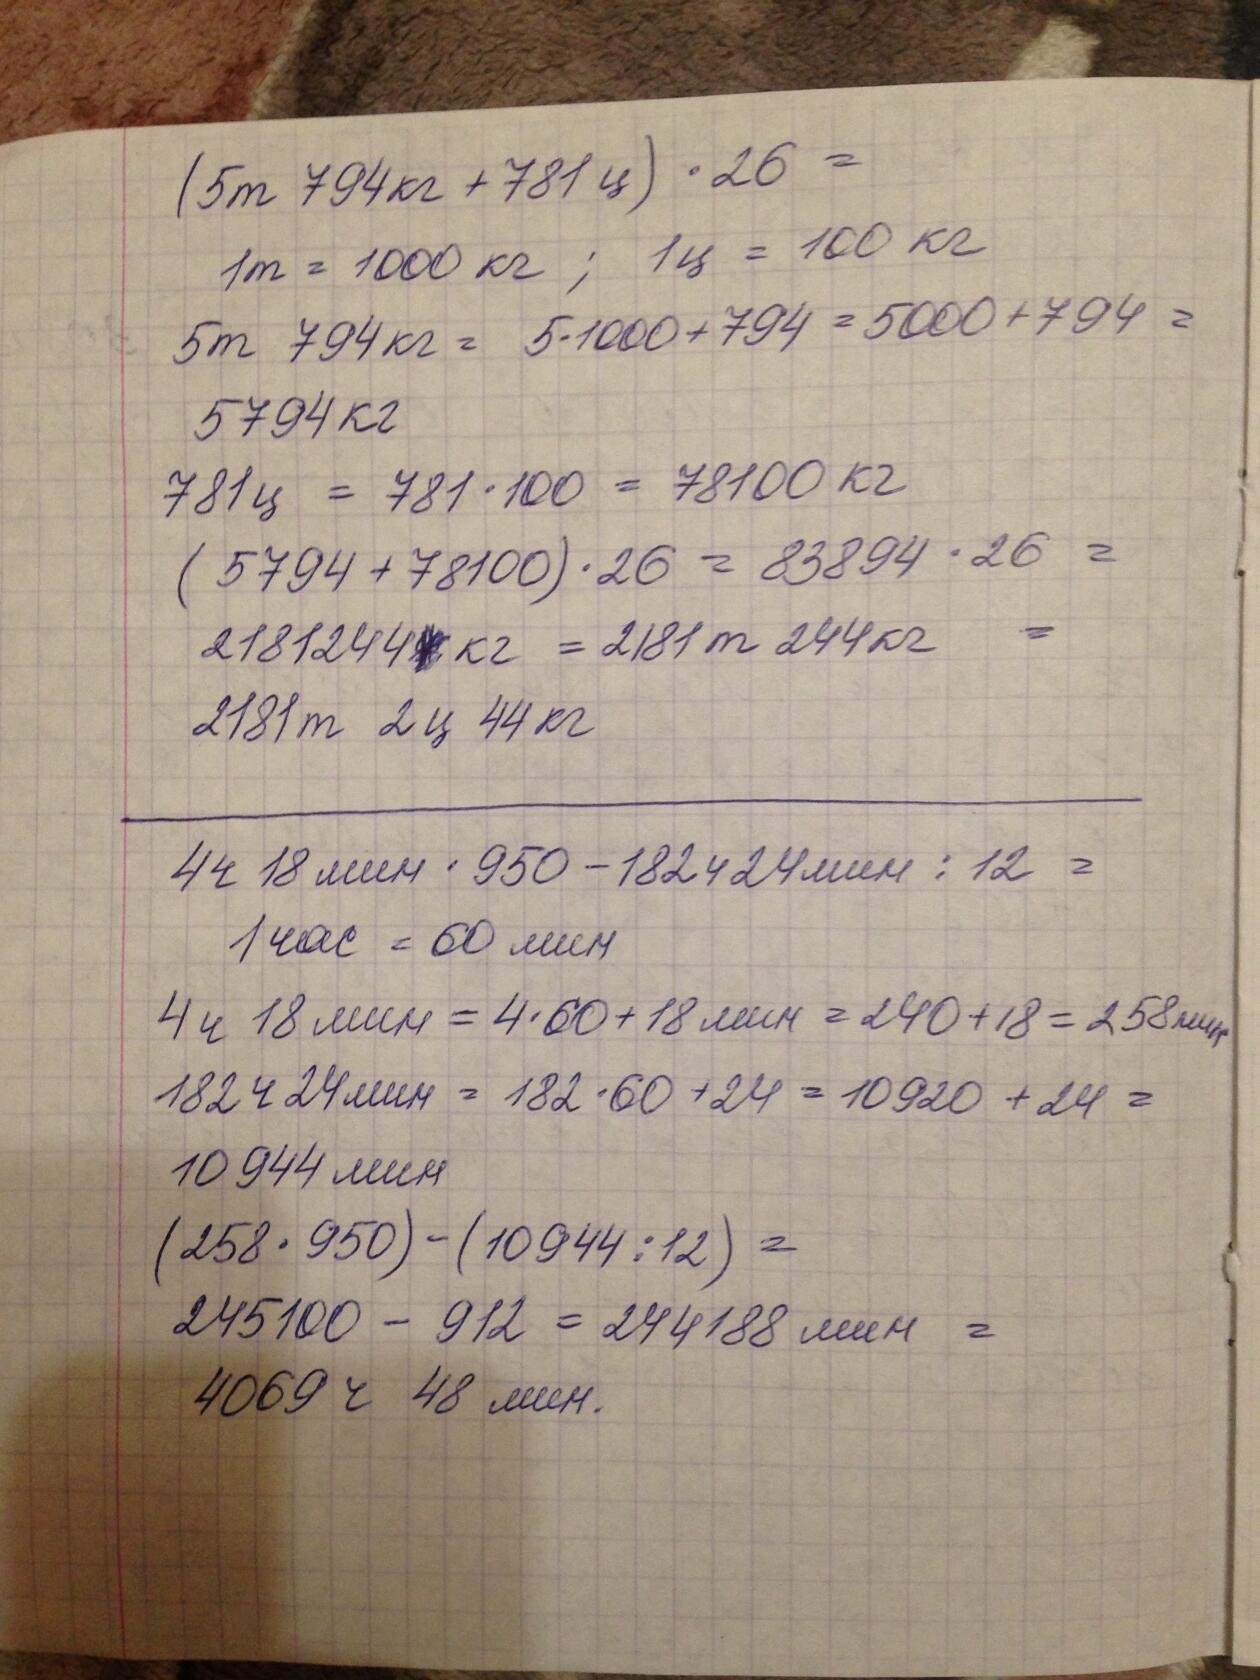 (5т 794кг + 781ц) · 26 =
1т = 1000 кг ; 1ц = 100 кг
5т 794кг = 5·1000+794 = 5000+794 =
5794кг
781ц = 781·100 = 78100 кг
(5794 + 78100) · 26 = 83894 · 26 =
2181244 кг = 2181т 244кг =
2181т 2ц 44кг
4ч 18мин · 950 - 182ч24мин : 12 =
1час = 60 мин
4ч 18мин = 4·60+18мин = 240+18 = 258мин
182ч 24мин = 182·60 +24 = 10920 +24 =
10944мин
(258·950)-(10944:12) =
245100 - 912 = 244188мин =
4069ч 48 мин.